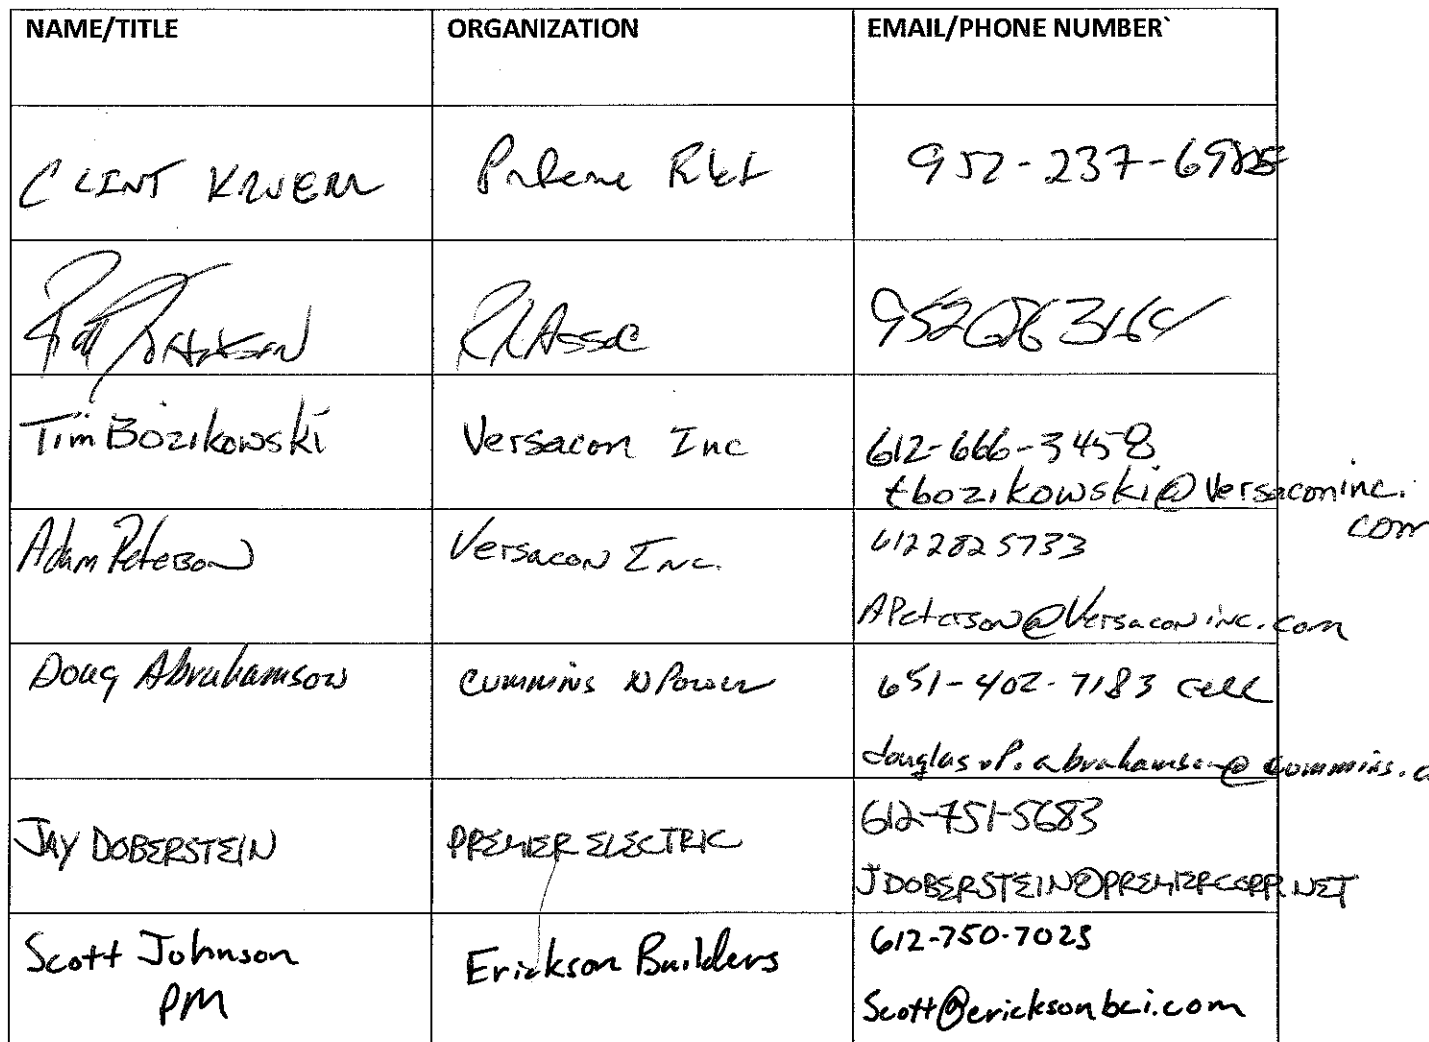 NAME/TITLE ORGANIZATION EMAIL/PHONE NUMBER`
CLINT 952-237-
Tim Bozikowski Versacon Inc 612-666-3458
tbozikowski@Versaconinc.
com
Adam Peterson Versacon Inc. 6122825733
APeterson@Versaconinc.com
Doug Abrahamson Cummins NPower 651-402-7183 cell
douglas.P.abrahamson@cummins.c
JAY DOBERSTEIN PREMIER ELECTRIC 612-751-5683
JDOBERSTEIN@PREMIERCORP.NET
Scott Johnson Erickson Builders 612-750-7023
PM Scott@ericksonbci.com